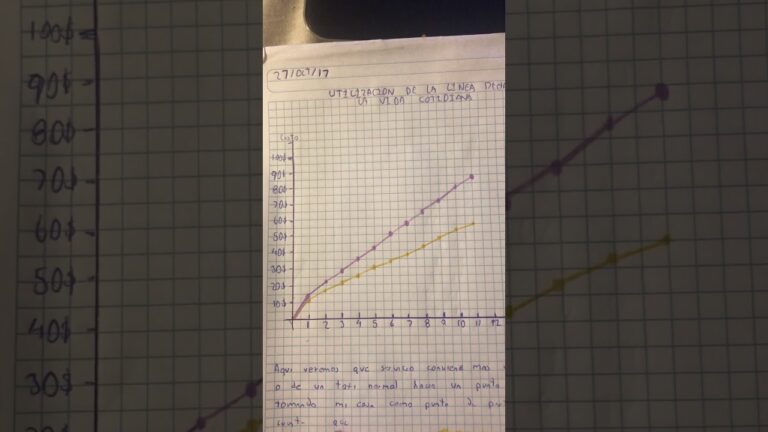 27/OCT/17
UTILIZACION DE LA LINEA RECTA
LA VIDA COTIDIANA
Costo
100$
90$
80$
70$
60$
50$
40$
30$
20$
10$
1 2 3 4 5 6 7 8 9 10 11 12
Aqui veremos que servicio conviene mas
o de un taxi normal hacia un punto
tomando mi casa como punto de
que
100$
90$
80$
70$
60$
50$
40$
30$